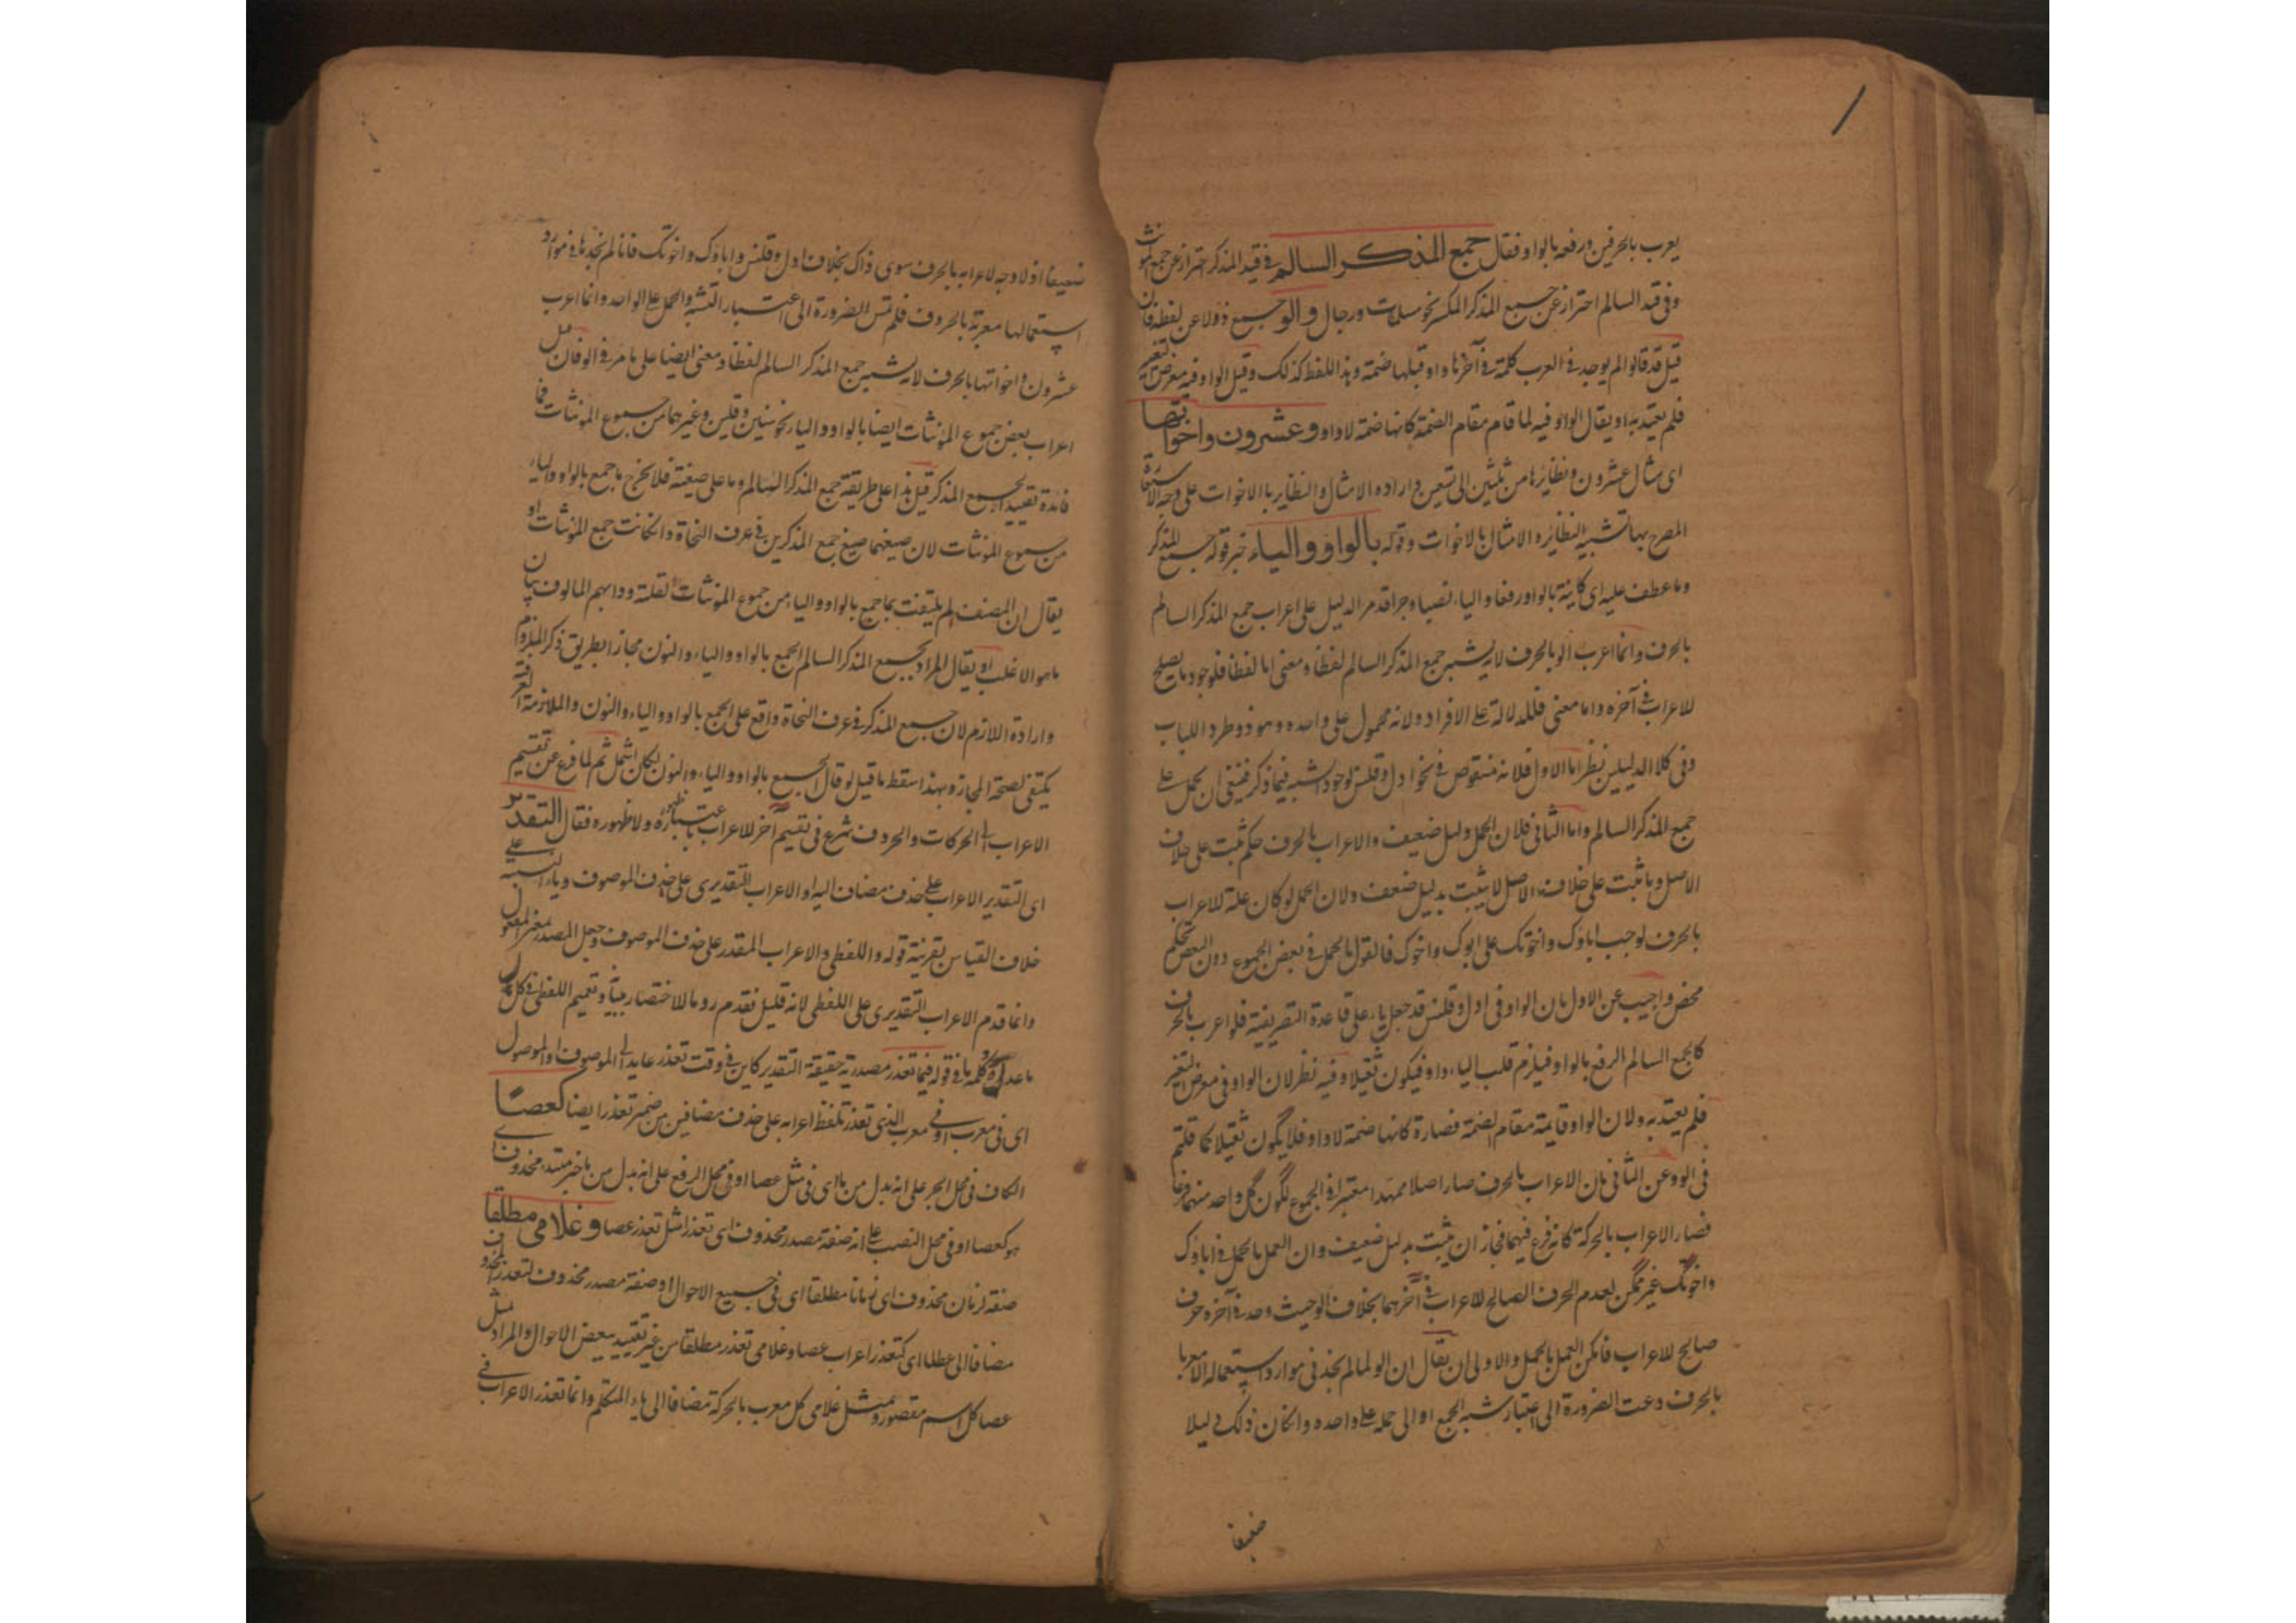 يعرب بالحرفين ورفعه بالواو فقال جمع المذكر السالم فى قيد المذكر احتراز عن جمع المونث
وفى قيد السالم احتراز عن جميع المذكر المكسر نحو مسلمات ورجال والو جميع ذو لا عن لفظه فان
قيل قد قالوا لم يوجد فى العرب كلمة فى آخرها واو قبلها ضمة وهذا اللفظ كذلك وقيل الواو فيه معرض التغير
فلم يعتد به او يقال الواو فيه لما قام مقام الضمة كانها ضمة لا واو وعشرون واخواتها
اى مثال عشرون ونظائرها من ثلثين الى تسعين واراده الامثال والنظاير بالاخوات على وجه الاستعارة
المصرح بها تشبيه النظائر والامثال بالاخوات وقوله بالواو والياء خبر قوله جميع المذكر
وما عطف عليه اى كاينة بالواو رفعا والياء نصبا وجرا قد مر الدليل على اعراب جمع المذكر السالم
بالحرف وانما اعرب الو بالحرف لانه يشبه جمع المذكر السالم لفظا ومعنى اما لفظا فلوجود ما يصلح
للاعراب فى آخره واما معنى فللدلالة على الافراد ولانه محمول على واحده وهو ذو طرد اللباب
وفى كلا الدليلين نظر اما الاول فلانه منقوص فى نحو ادل وقلنس لوجود الشبه فيما ذكر فينبغى ان يحمل على
جمع المذكر السالم واما الثانى فلان الحمل دليل ضعيف والاعراب بالحرف حكم ثبت على خلاف
الاصل وما ثبت على خلاف الاصل لا يثبت بدليل ضعف ولان الحمل لو كان علة للاعراب
بالحرف لوجب اباوك واخوتك على ابوك واخوك فالقول بالحمل فى بعض الجموع دون البعض تحكم
محض واجيب عن الاول بان الواو فى ادل وقلنس قد جعل ياء على قاعدة التصريفية فلو اعرب بالحرف
كالجمع السالم الرفع بالواو فيلزم قلب الياء واو فيكون ثقيلا وفيه نظر لان الواو فى معرض التغير
فلم يعتد به ولان الواو قايمة مقام الضمة فصارة كانها ضمة لا واو فلا يكون ثقيلا كما قلتم
فى الو وعن الثانى بان الاعراب بالحرف صار اصلا ممهدا معتبرا فى الجموع لكون كل واحد منهما فرعا
فصار الاعراب بالحركة كانه فرع فيهما فجاز ان يثبت بدليل ضعيف وان العمل بالحمل فى اباوك
واخوتك غير ممكن لعدم الحرف الصالح للاعراب فى آخرهما بخلاف الو حيث وجد فى آخره حرف
صالح للاعراب فامكن العمل بالحمل والاولى ان يقال ان الو لما لم يجد فى موارد استعماله الا معربا
بالحرف دعت الضرورة الى اعتبار شبه الجمع او الى حمله على واحده وان كان ذلك دليلا
ضعيفا
ضعيفا اذ لا وجه لاعرابه بالحرف سوى ذاك بخلاف ادل وقلنس واباؤك واخوتك فانا لم نجدها فى موارد
استعمالها معربة بالحروف فلم تمس الضرورة الى اعتبار التشبه والحمل على الواحد وانما اعرب
عشرون واخواتها بالحرف لانه يشبه جمع المذكر السالم لفظا ومعنى ايضا على ما مر فى الو فان قيل
اعراب بعض جموع المؤنثات ايضا بالواو والياء نحو سنين وقلين وغيرهما من جموع المؤنثات فما
فائدة تقييد الجمع المذكر قيل هذا على طريقة جمع المذكر السالم وما على صيغته فلا يخرج ما جمع بالواو والياء
من جموع المؤنثات لان صيغهما صيغ جمع المذكرين فى عرف النحاة وانكانت جمع المؤنثات او
يقال ان المصنف لم يلتفت بما جمع بالواو والياء من جموع المؤنثات لقلته ودابهم المالوف بيان
ما هو الاغلب او يقال المراد بجميع المذكر السالم الجمع بالواو والياء والنون مجازا بطريق ذكر الملزوم
وارادة اللازم لان جميع المذكر فى عرف النحاة واقع على الجمع بالواو والياء والنون والملازمة العرفية
يكتفى لصحة المجاز وبهذا سقط ما قيل لو قال الجمع بالواو والياء والنون لكان اشمل ثم لما فرغ عن تقسيم
الاعراب الى الحركات والحروف شرع فى تقسيم آخر للاعراب باعتبار ظهوره ولا ظهوره فقال التقدير
اى التقدير الاعراب على حذف مضاف اليه او الاعراب التقديرى على حذف الموصوف وياء النسبة على
خلاف القياس بقرينة قوله واللفظى والاعراب المقدر على حذف الموصوف وجعل المصدر بمعنى المفعول
وانما قدم الاعراب التقديرى على اللفظى لانه قليل فقدم روما للاختصار وتعميم اللفظى فى كل
ما عداه كلمة ما فى قوله فيما تعذر مصدرية حقيقة التقدير كاين فى وقت تعذر عايد الى الموصوف او الموصول
اى فى معرب او فى معرب الذى تعذر تلفظ اعرابه على حذف مضافين من ضمير تعذر ايضا كعصا
الكاف فى محل الجر على انه بدل من ما اى فى مثل عصا او فى محل الرفع على انه بدل من ما خبر مبتداء محذوف اى
هو كعصا او فى محل النصب على انه صفة مصدر محذوف اى تعذرا مثل تعذر عصا وغلامى مطلقا
صفة زمان محذوف اى زمانا مطلقا اى فى جميع الاحوال او صفة مصدر محذوف لتعذر المحذوف
مضافا الى عطلا اى كتعذر اعراب عصا وغلامى تعذر مطلقا من غير تقييد ببعض الاحوال والمراد بمثل
عصا كل اسم مقصور وبمثل غلامى كل معرب بالحركة مضافا الى ياء المتكلم وانما تعذر الاعراب فى